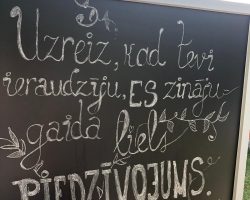 Uzreiz, kad tevi
ieraudzīju, ES zināju-
gaida liels
PIEDZĪVOJUMS.